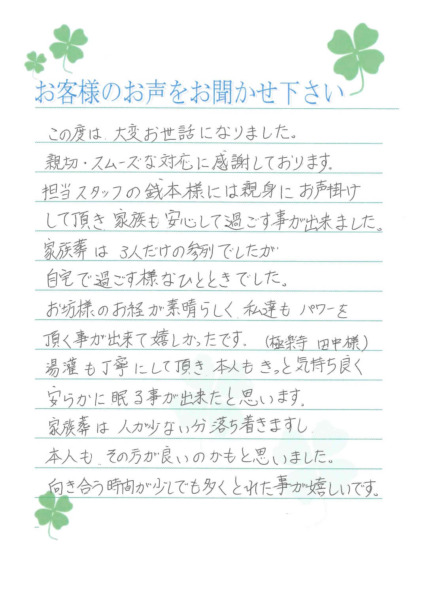 お客様のお声をお聞かせ下さい
この度は 大変お世話になりました。
親切・スムーズな対応に感謝しております。
担当スタッフの銭本様には親身にお声掛け
して頂き 家族も安心して過ごす事が出来ました。
家族葬は 3人だけの参列でしたが
自宅で過ごす様なひとときでした。
お坊様のお経が素晴らしく 私達も パワーを
頂く事が出来て嬉しかったです。(極楽寺 田中様)
湯灌も丁寧にして頂き 本人も きっと気持ち良く
安らかに 眠る事が出来たと思います。
家族葬は 人が少ない分 落ち着きますし
本人も その方が良いのかもと思いました。
向き合う時間が少しでも多くとれた事が嬉しいです。